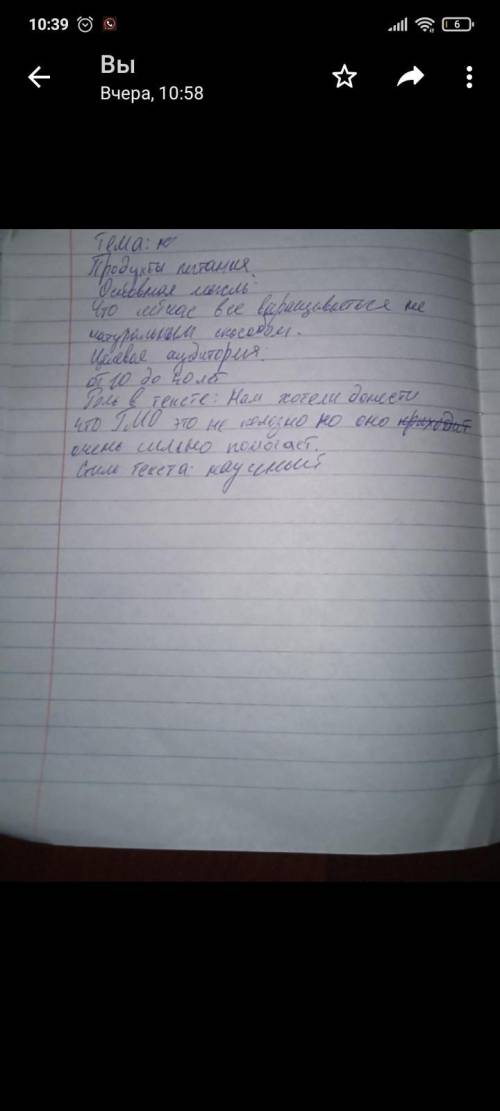 10:39
6
Вы
Вчера, 10:58
Тема: ю
Продукты питания.
Основная мысль:
Что сейчас все выращиваться не
натуральным способом.
Целевая аудитория:
от 10 до 40 лет
Роль в тексте: Нам хотели донести
что ГМО это не полезно но оно приходит
очень сильно помогает.
Стиль текста: научный